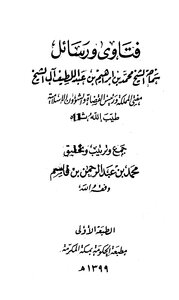 فتاوى ورسائل
سماحة الشيخ محمد بن إبراهيم بن عبد اللطيف آل الشيخ
مفتي المملكة ورئيس القضاة والشؤون الإسلامية
طيب الله ثراه
جمع وترتيب وتحقيق
محمد بن عبد الرحمن بن قاسم
وفقه الله
الطبعة الأولى
مطبعة الحكومة بمكة المكرمة
١٣٩٩